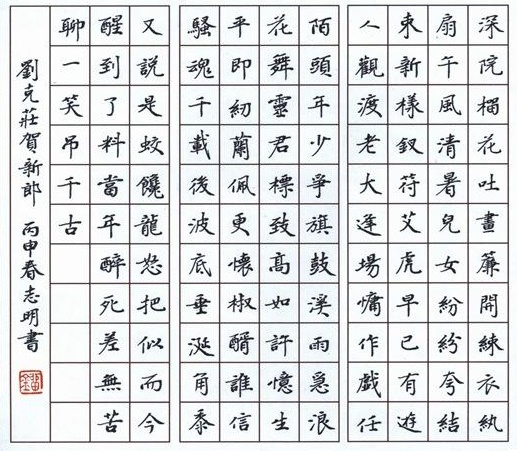 深院榴花吐畫簾開綀衣紈
扇午風清暑兒女紛紛夸結
束新樣釵符艾虎早已有遊
人觀渡老大逢場慵作戲任
陌頭年少爭旗鼓溪雨急浪
花舞靈君標致高如許憶生
平即紉蘭佩更懷椒醑誰信
騷魂千載後波底垂涎角黍
又說是蛟饞龍怒把似而今
醒到了料當年醉死差無苦
聊一笑吊千古
劉克莊賀新郎 丙申春志明書